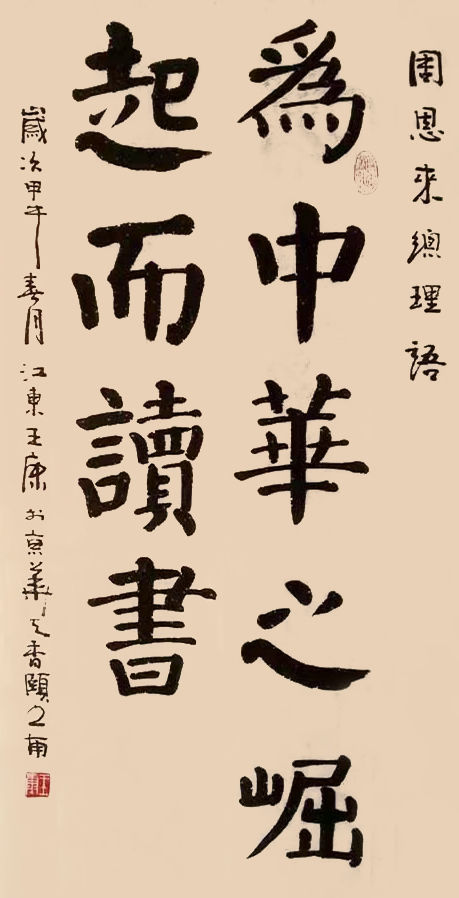 周恩来總理語
為中華之崛
起而讀書
歲次甲午春月江東王康於京華天香頤之南